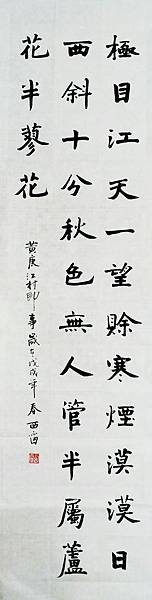 極目江天一望賒寒煙漠漠日
西斜十分秋色無人管半屬蘆
花半蓼花
黃庚江村即事歲在戊戌年春